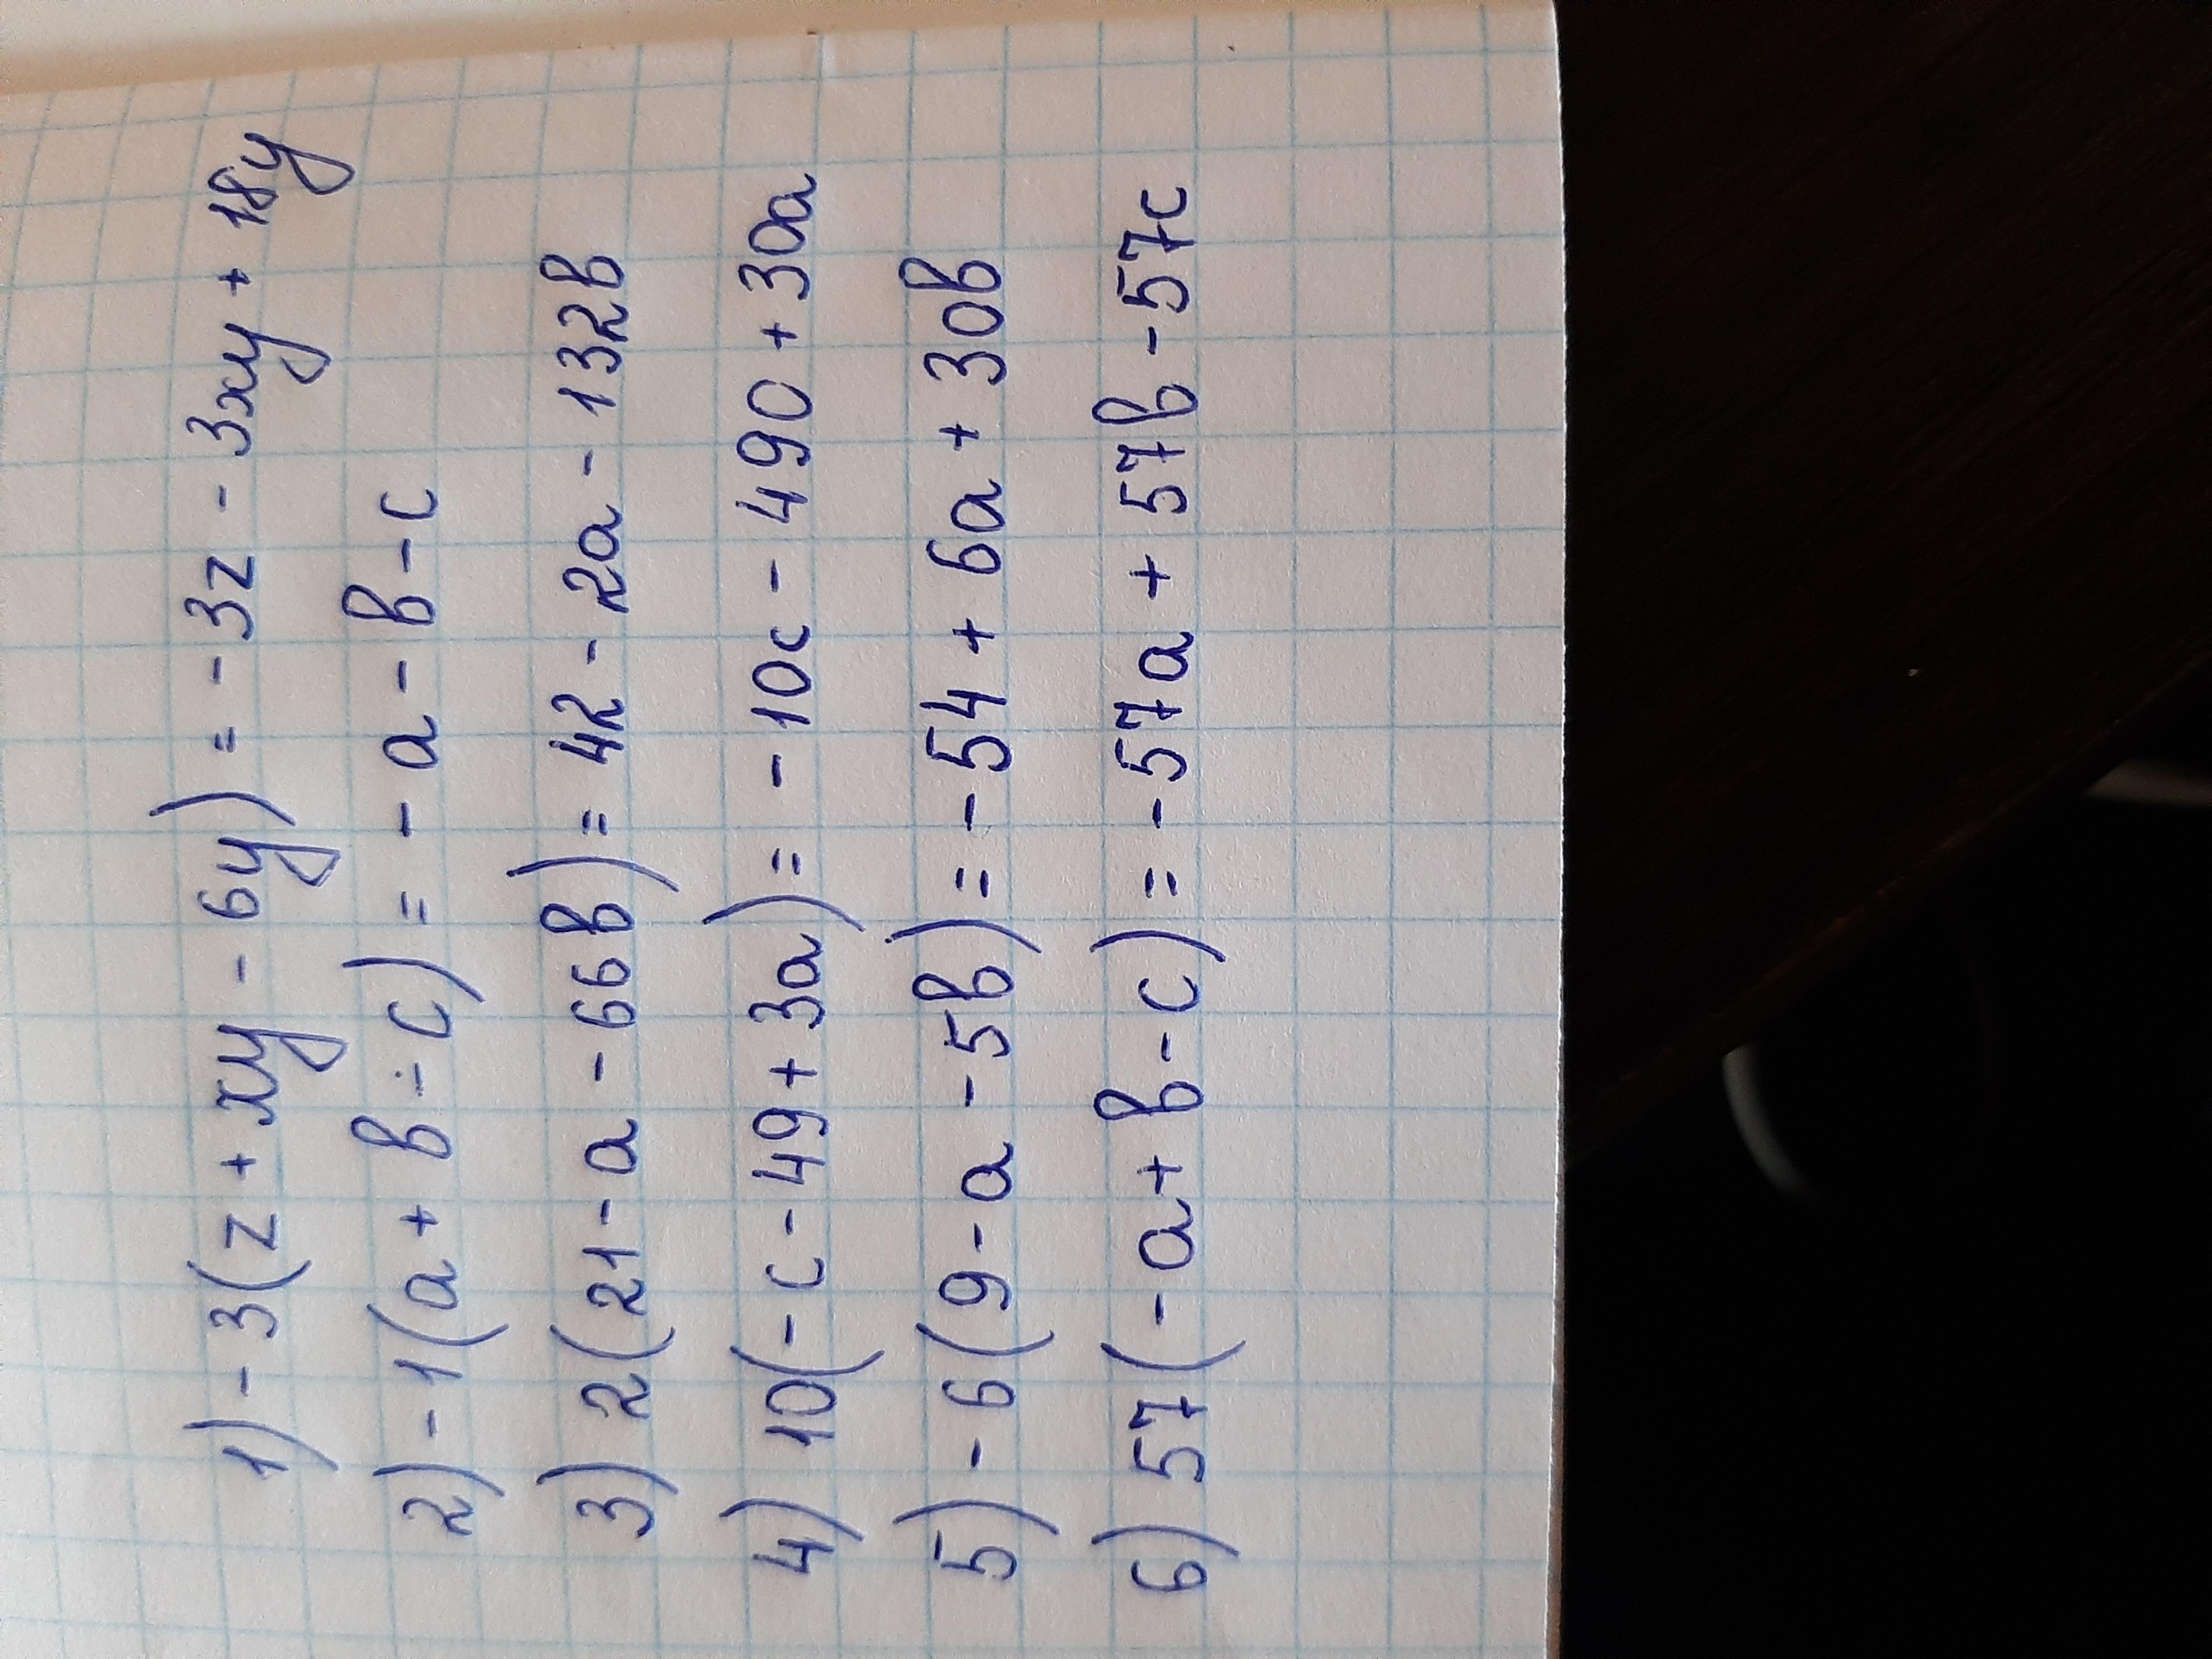 1) - 3(z + xy - 6y) = - 3z - 3xy + 18y
2) - 1(a + b - c) = - a - b - c
3) 2(21 - a - 66b) = 42 - 2a - 132b
4) 10(- c - 49 + 3a) = - 10c - 490 + 30a
5) - 6(9 - a - 5b) = - 54 + 6a + 30b
6) 57(- a + b - c) = - 57a + 57b - 57c